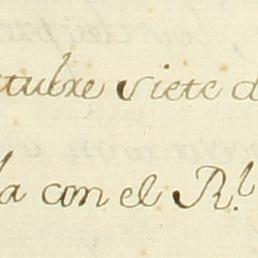 ctubre siete d
la con el R.l